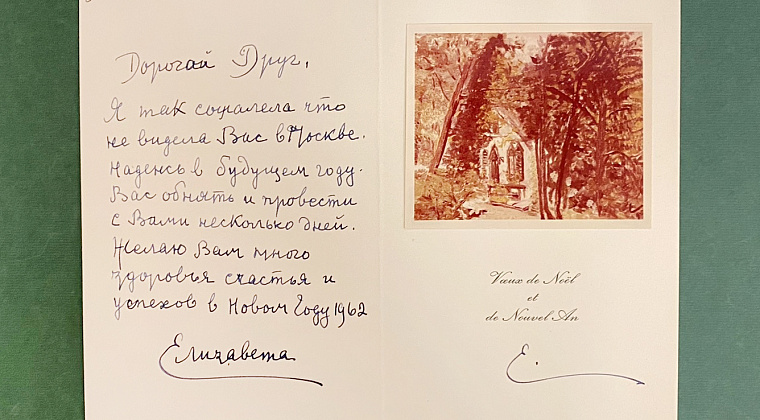 Дорогай Друг,
Я так сожалела что
не видела Вас в Москве.
Надеюсь в будущем году.
Вас обнять и провести
с Вами несколько дней.
Желаю Вам много
здоровья счастья и
успехов в Новом Году 1962
Елизавета
Vœux de Noël
et
de Nouvel An
E.